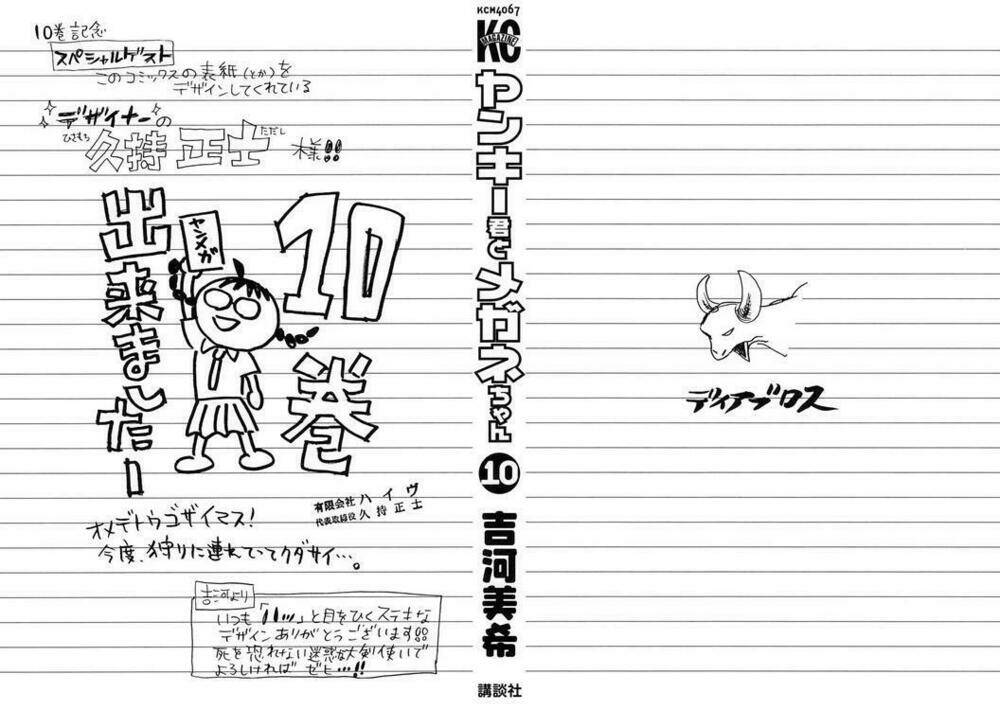 10巻記念
スペシャルゲスト
このコミックスの表紙(とか)を
デザインしてくれている
デザイナーの
ひさもち ただし
久持 正士 様!!
10巻
出来ましたー
ヤンメガ
有限会社ハイヴ
代表取締役 久持正士
オメデトウゴザイマス!
今度、狩りに連れてってクダサイ…。
吉河より
いつも「ハッ」と目をひくステキな
デザインありがとうございます!!
死を恐れない迷惑な大剣使いで
よろしければ ゼヒ…!!
KCM4067
KC
MAGAZINE
ヤンキー君とメガネちゃん
10
吉河美希
講談社
ディアブロス